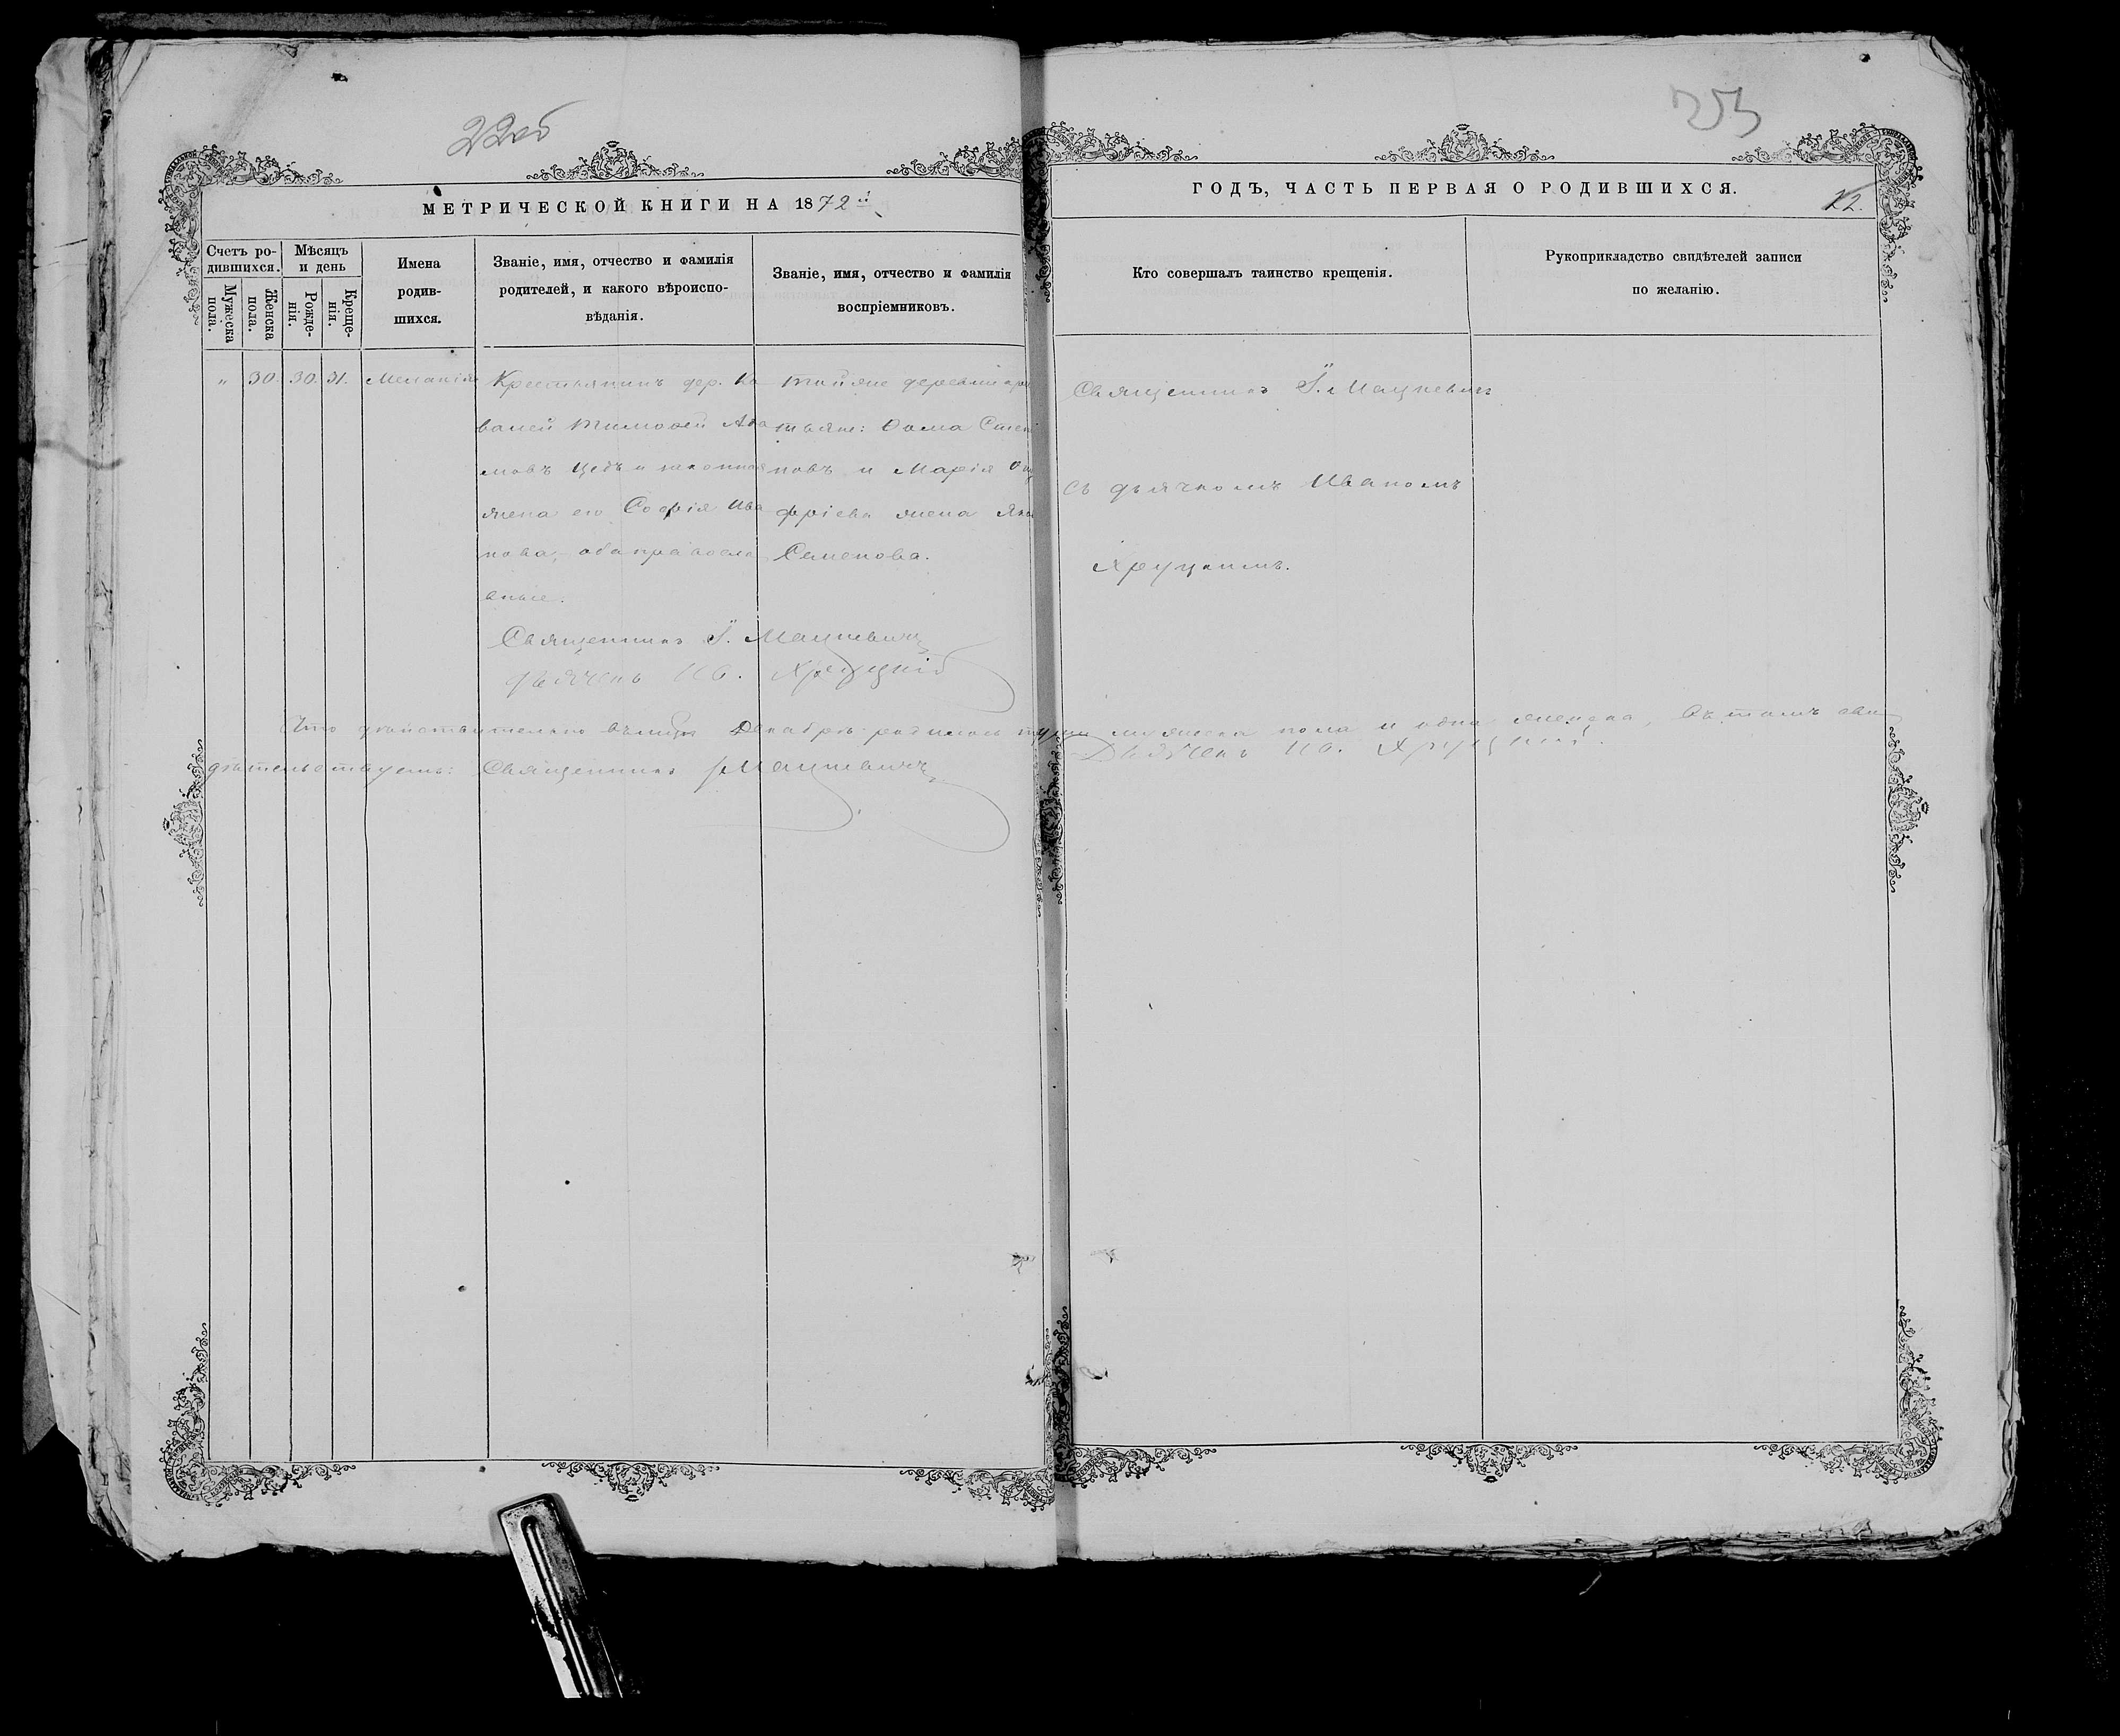 22об
253
МЕТРИЧЕСКОЙ КНИГИ НА 1872й
ГОДЪ, ЧАСТЬ ПЕРВАЯ О РОДИВШИХСЯ.
22.
Счетъ ро-
дившихся.
Мужеска
пола.
Женска
пола.
Мѣсяцъ
и день
Рожде-
нія.
Креще-
нія.
Имена
родив-
шихся.
Званіе, имя, отчество и фамилія
родителей, и какого вѣроиспо-
вѣданія.
Званіе, имя, отчество и фамилія
воспріемниковъ.
Кто совершалъ таинство крещенія.
Рукоприкладство свидѣтелей записи
по желанію.
" 30. 30. 31. Меланія
Крестьянинъ дер. Ко
валей Тимофей
и законная
жена его Софія Ива
нова, оба православ
ные.
Тойже деревни кре
тьяне: Ѳома Степа
новъ и Марія
фріева жена
Семенова.
Священникъ І. Мацкевичъ
съ дьячкомъ Иваномъ
Хруцкимъ.
Священникъ І. Мацкевичъ
Дьячекъ Ив. Хруцкій
Что дѣйствительно Декабрѣ родилось мужеска пола и одна женска, въ томъ сви
дѣтельствуемъ: Священникъ І Мацкевичъ
Дьячекъ Ив. Хруцкій.